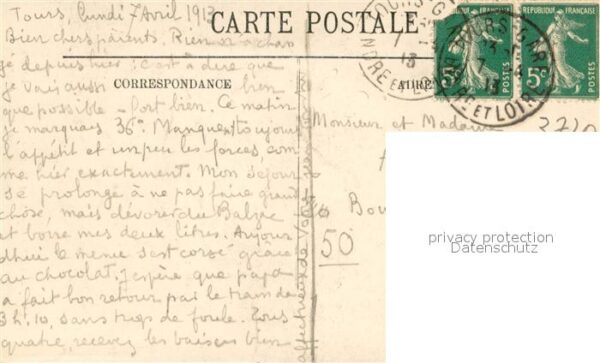 Tours, lundi 7 Avril 1913
CARTE POSTALE
Bien chers parents. Rien n'a
je depuis hier : c'est à dire que
je vais aussi bien
que possible - fort bien. Ce matin
je marquais 36°. Manquent toujours
l'appétit et un peu les forces, com
me hier exactement. Mon séjour
se prolonge à ne pas faire grand
chose, mais dévorer du Balzac
et boire mes deux litres. Aujour
d'hui le menu s'est corsé grâce
au chocolat. J'espère que papa
a fait bon retour par le train de
3h.10, sans trop de foule. Tous
quatre, recevez les baisers bien
affectueux de
CORRESPONDANCE
ADRES
RÉPUBLIQUE FRANÇAISE
5c
POSTES
5c
POSTES
TOURS GARE
INDRE ET LOIRE
7
13
Monsieur et Madame
Bou
50
privacy protection
Datenschutz